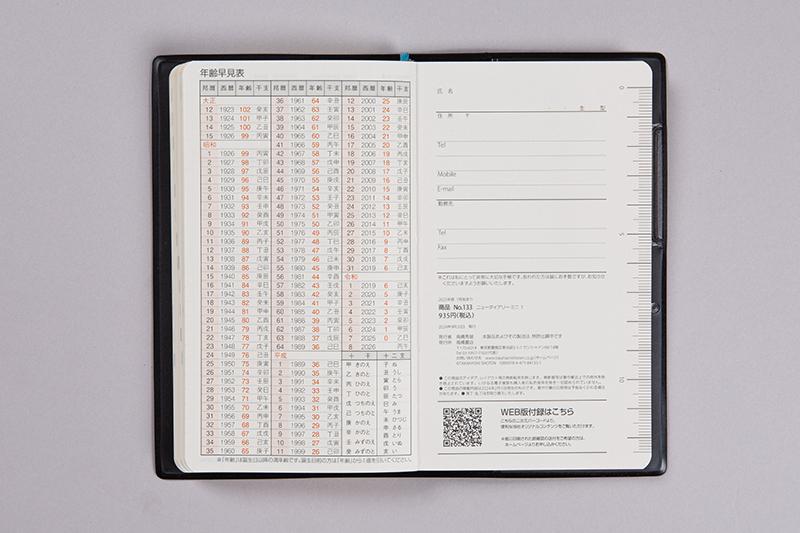 年齢早見表
邦暦 西暦 年齢 干支
大正
12 1923 102 癸亥
13 1924 101 甲子
14 1925 100 乙丑
15 1926 99 丙寅
昭和
1 1926 99 丙寅
2 1927 98 丁卯
3 1928 97 戊辰
4 1929 96 己巳
5 1930 95 庚午
6 1931 94 辛未
7 1932 93 壬申
8 1933 92 癸酉
9 1934 91 甲戌
10 1935 90 乙亥
11 1936 89 丙子
12 1937 88 丁丑
13 1938 87 戊寅
14 1939 86 己卯
15 1940 85 庚辰
16 1941 84 辛巳
17 1942 83 壬午
18 1943 82 癸未
19 1944 81 甲申
20 1945 80 乙酉
21 1946 79 丙戌
22 1947 78 丁亥
23 1948 77 戊子
24 1949 76 己丑
25 1950 75 庚寅
26 1951 74 辛卯
27 1952 73 壬辰
28 1953 72 癸巳
29 1954 71 甲午
30 1955 70 乙未
31 1956 69 丙申
32 1957 68 丁酉
33 1958 67 戊戌
34 1959 66 己亥
35 1960 65 庚子
邦暦 西暦 年齢 干支
36 1961 64 辛丑
37 1962 63 壬寅
38 1963 62 癸卯
39 1964 61 甲辰
40 1965 60 乙巳
41 1966 59 丙午
42 1967 58 丁未
43 1968 57 戊申
44 1969 56 己酉
45 1970 55 庚戌
46 1971 54 辛亥
47 1972 53 壬子
48 1973 52 癸丑
49 1974 51 甲寅
50 1975 50 乙卯
51 1976 49 丙辰
52 1977 48 丁巳
53 1978 47 戊午
54 1979 46 己未
55 1980 45 庚申
56 1981 44 辛酉
57 1982 43 壬戌
58 1983 42 癸亥
59 1984 41 甲子
60 1985 40 乙丑
61 1986 39 丙寅
62 1987 38 丁卯
63 1988 37 戊辰
64 1989 36 己巳
平成
1 1989 36 己巳
2 1990 35 庚午
3 1991 34 辛未
4 1992 33 壬申
5 1993 32 癸酉
6 1994 31 甲戌
7 1995 30 乙亥
8 1996 29 丙子
9 1997 28 丁丑
10 1998 27 戊寅
11 1999 26 己卯
邦暦 西暦 年齢 干支
12 2000 25 庚辰
13 2001 24 辛巳
14 2002 23 壬午
15 2003 22 癸未
16 2004 21 甲申
17 2005 20 乙酉
18 2006 19 丙戌
19 2007 18 丁亥
20 2008 17 戊子
21 2009 16 己丑
22 2010 15 庚寅
23 2011 14 辛卯
24 2012 13 壬辰
25 2013 12 癸巳
26 2014 11 甲午
27 2015 10 乙未
28 2016 9 丙申
29 2017 8 丁酉
30 2018 7 戊戌
31 2019 6 己亥
令和
1 2019 6 己亥
2 2020 5 庚子
3 2021 4 辛丑
4 2022 3 壬寅
5 2023 2 癸卯
6 2024 1 甲辰
7 2025 0 乙巳
8 2026 丙午
十干 十二支
甲 きのえ 子 ね
乙 きのと 丑 うし
丙 ひのえ 寅 とら
丁 ひのと 卯 う
戊 つちのえ 辰 たつ
己 つちのと 巳 み
庚 かのえ 午 うま
辛 かのと 未 ひつじ
壬 みずのえ 申 さる
癸 みずのと 酉 とり
戌 いぬ
亥 い
※「年齢」は誕生日以降の満年齢です。誕生日前の方は「年齢」から1歳を引いてください。
氏名
血 型
住所 〒
Tel
Mobile
E-mail
勤務先
Tel
Fax
※これは私にとって非常に大切な手帳です。拾われた方は誠にお手数ですが、お知らせ
くださいますようお願いいたします。
商品 No.133 ニューダイアリー ミニ 1
935円(税込)
発行者 高橋秀雄
発行所 高橋書店
WEB版付録はこちら
こちらの二次元バーコードより、
便利な情報をオリジナルコンテンツをご覧いただけます。
ホームページよりお申し込みください。
0
5
10